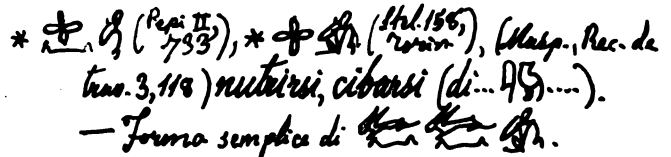 * (Pepi II, 733), * (Stel. 158, Torino), (Masp., Rec. de
trav. 3, 118) nutrirsi, cibarsi (di... ....).
— Forma semplice di .